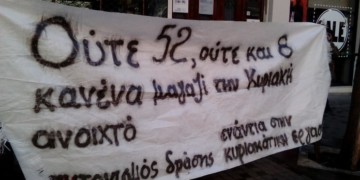 Ούτε 52, ούτε και 8
κανένα μαγαζί την Κυριακή
ανοιχτό
ενάντια στην
συντονισμός δράσης κυριακάτικη εργασία